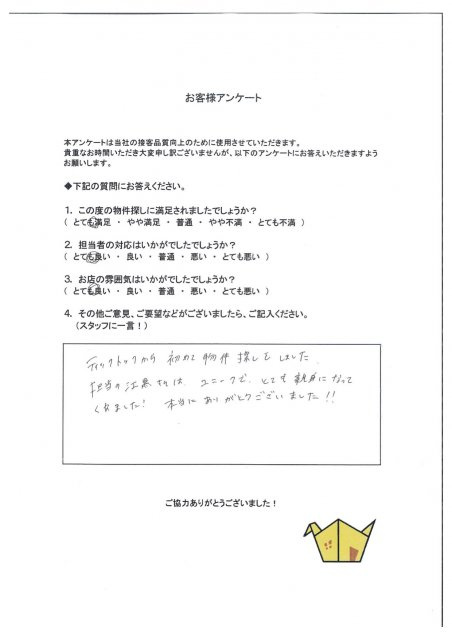 お客様アンケート
本アンケートは当社の接客品質向上のために使用させていただきます。
貴重なお時間いただき大変申し訳ございませんが、以下のアンケートにお答えいただきますよう
お願いします。
◆下記の質問にお答えください。
1. この度の物件探しに満足されましたでしょうか？
（ とても満足 ・ やや満足 ・ 普通 ・ やや不満 ・ とても不満 ）
2. 担当者の対応はいかがでしたでしょうか？
（ とても良い ・ 良い ・ 普通 ・ 悪い ・ とても悪い ）
3. お店の雰囲気はいかがでしたでしょうか？
（ とても良い ・ 良い ・ 普通 ・ 悪い ・ とても悪い ）
4. その他ご意見、ご要望などがございましたら、ご記入ください。
（スタッフに一言！）
ティックトックから 初めて 物件 探しをしました
担当の さんは、ユニークで、とても 親身になって
くれました! 本当にありがとうございました!!
ご協力ありがとうございました！